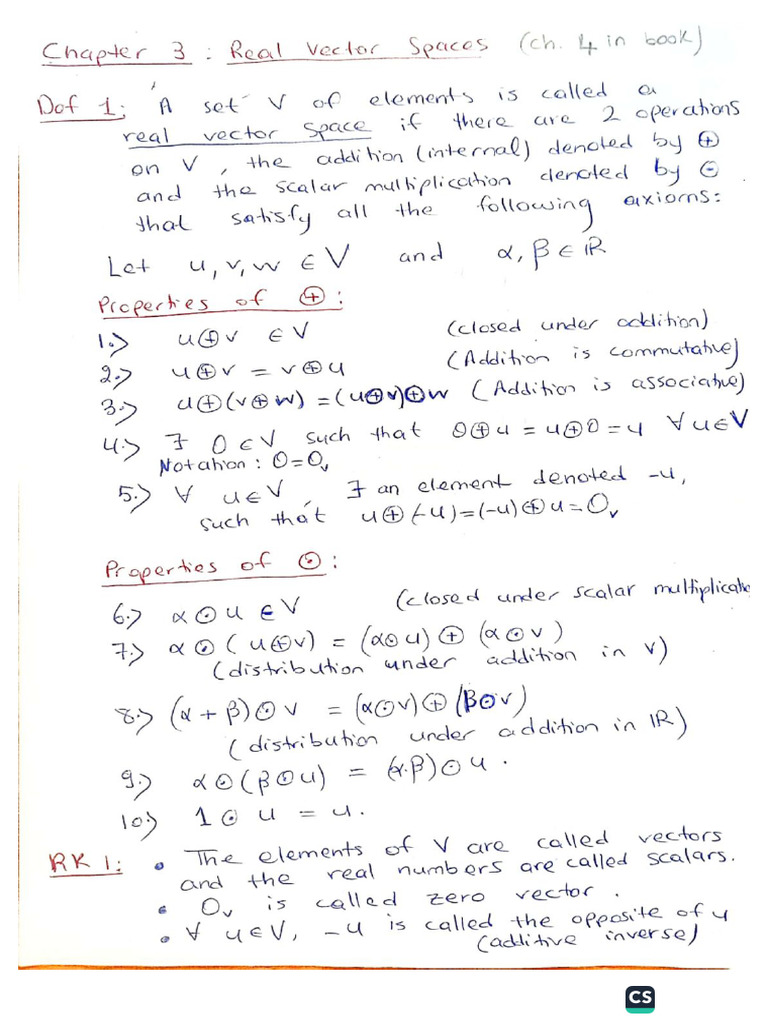 Chapter 3 : Real Vector Spaces (ch. 4 in book)
Def 1: A set V of elements is called a
real vector space if there are 2 operations
on V, the addition (internal) denoted by ⊕
and the scalar multiplication denoted by ⊙
that satisfy all the following axioms:
Let u, v, w ∈ V and α, β ∈ ℝ
Properties of ⊕ :
1.) u⊕v ∈ V (closed under addition)
2.) u⊕v = v⊕u (Addition is commutative)
3.) u⊕(v⊕w) = (u⊕v)⊕w (Addition is associative)
4.) ∃ 0 ∈ V such that 0⊕u = u⊕0 = u ∀ u∈V
Notation : 0=0ᵥ
5.) ∀ u∈V, ∃ an element denoted -u,
such that u⊕(-u)=(-u)⊕u=0ᵥ
Properties of ⊙ :
6.) α⊙u ∈ V (closed under scalar multiplicatio
7.) α⊙(u⊕v) = (α⊙u) ⊕ (α⊙v)
(distribution under addition in V)
8.) (α + β)⊙v = (α⊙v)⊕(β⊙v)
(distribution under addition in ℝ)
9.) α⊙(β⊙u) = (α.β)⊙u.
10.) 1⊙u = u.
RK 1: • The elements of V are called vectors
and the real numbers are called scalars.
• 0ᵥ is called zero vector.
• ∀ u∈V, -u is called the opposite of u
(additive inverse)
CS